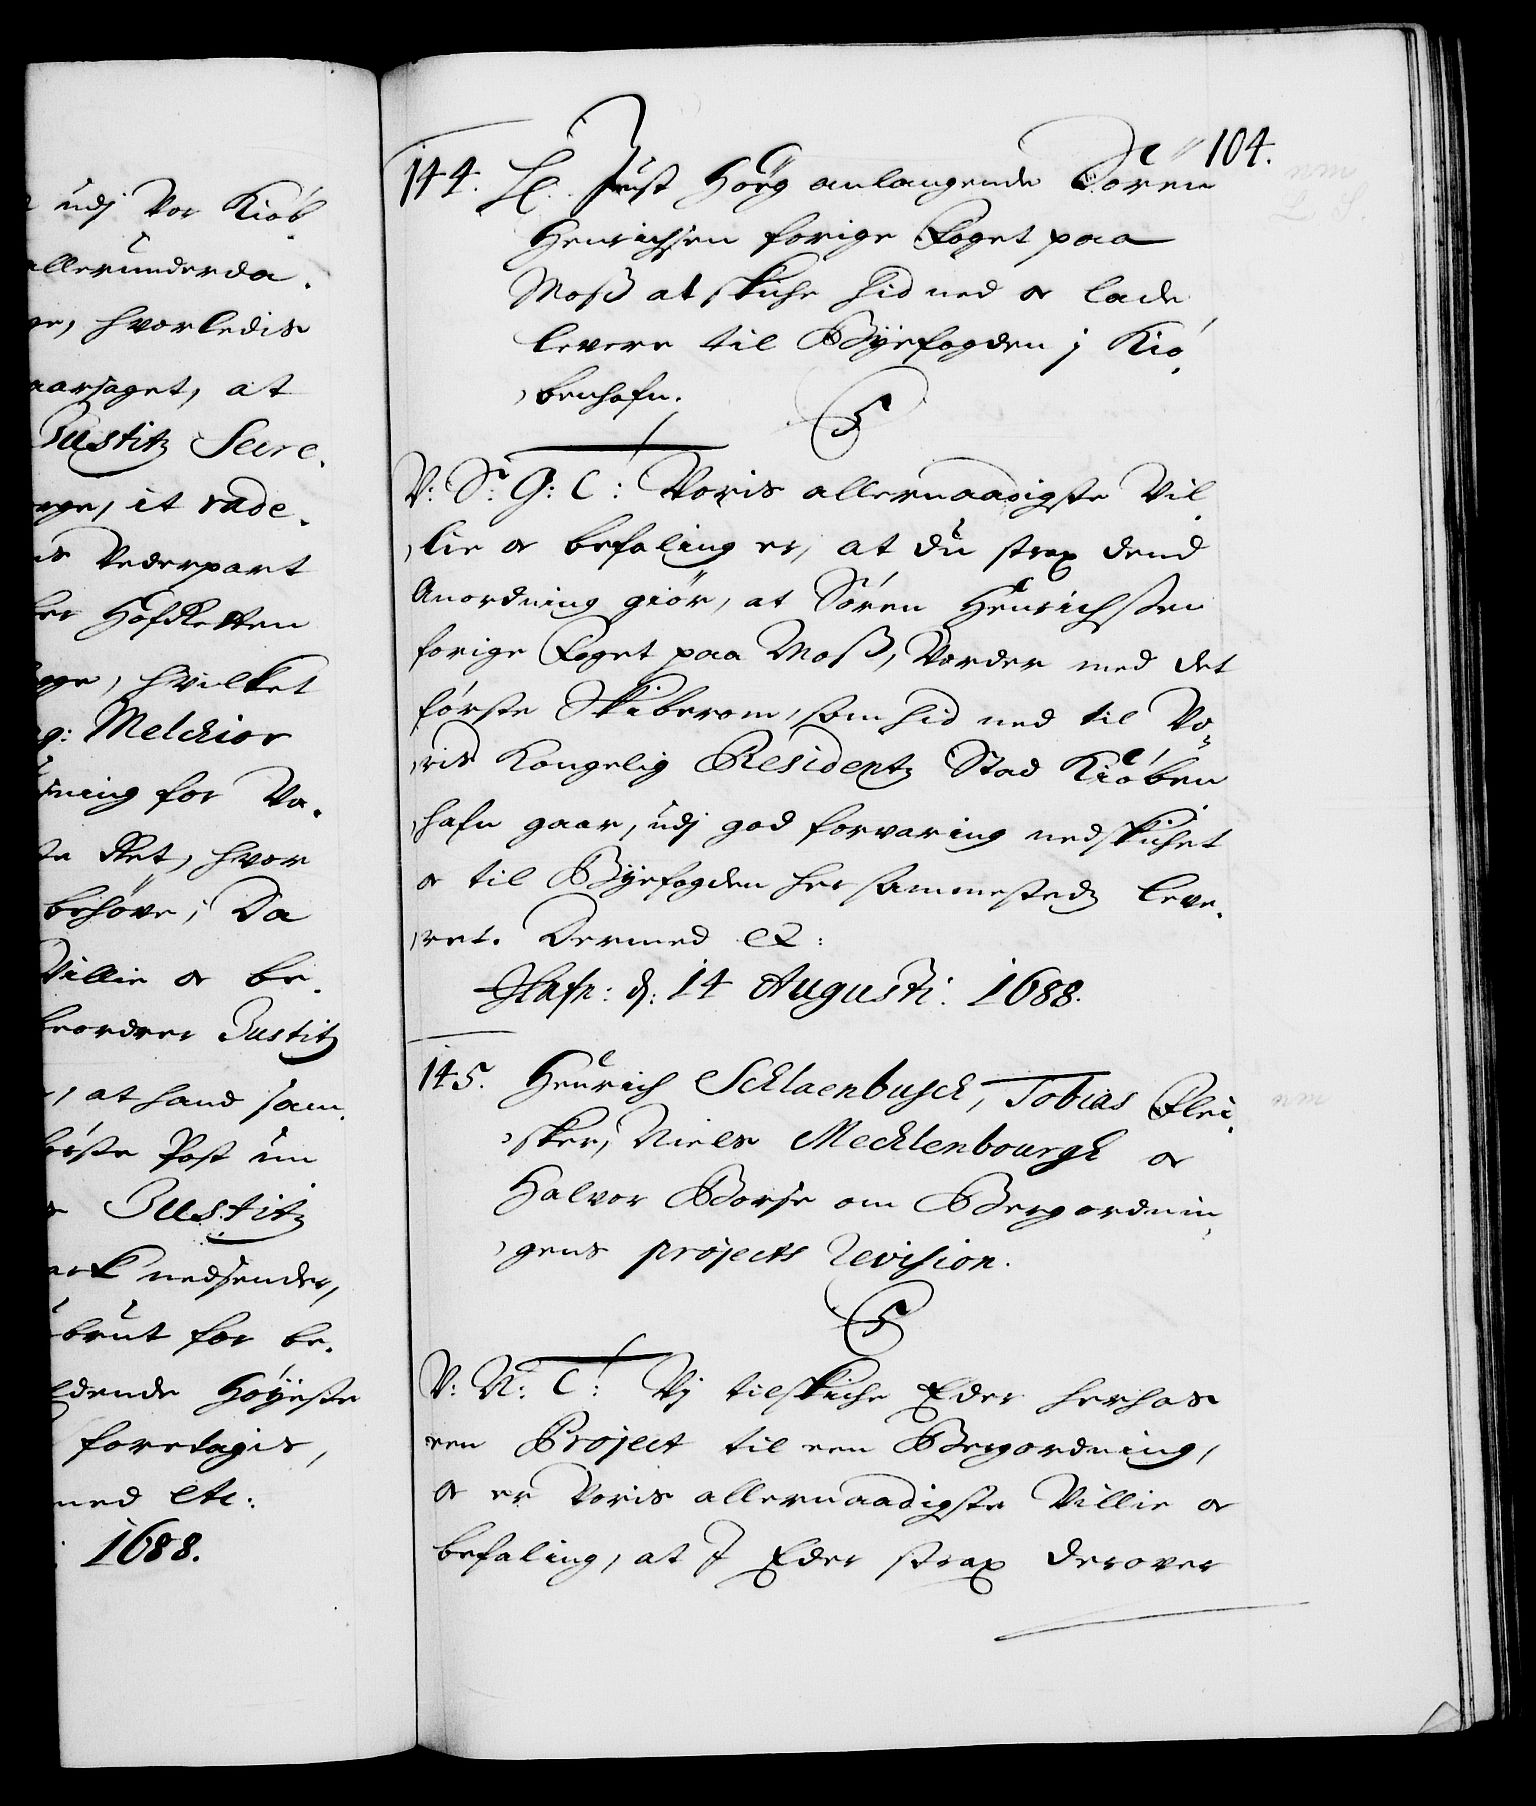 udj Vor Kiöb
allerunderda.
ge, hvorledis
aarsaget, at
Justitz Secre.
rge, it rade.
Vederpart
HofRetten
hvilket
g: Melchior
ning for Vo.
te Ret, hvor
behöve; Da
Villie or be.
beordrer Justitz
at hand sam.
förste Post un
Justitz
ark nedsender,
brut for be.
Höyeste
foretagis,
med etc:
1688.
104.
144. H. Just Höeg anlangende Sören
Henrichsen forige Foget paa
Moss at skiche hid ned or lade
levere til Byefogden j Kiö
benhafn.
C5
V: S: G: C: Voris allernaadigste Vil
lie or befaling er, at du strax dend
Anordning giör, at Sören Henrichssen
forige Foget paa Moss, Vorder med det
förste Skiberom, som hid ned til Vo
ris Kongelig Residentz Stad Kiöben
hafn gaar, udj god forvaring nedskichet
or til Byefogden her sammestedz leve.
ret. Dermed etc:
Hafn: d: 14 Augusti. 1688.
145. Henrich Schlaenbusch, Tobias Flei
sker, Niels Mecklenbourgh or
Halvor Borse om Bergordnin
gens projects revision.
C5
V: N: C: Vj tilskiche Eder herhos
een Project til een Bergordning,
or er Voris allernaadigste Villie or
befaling, at I Eder strax derover